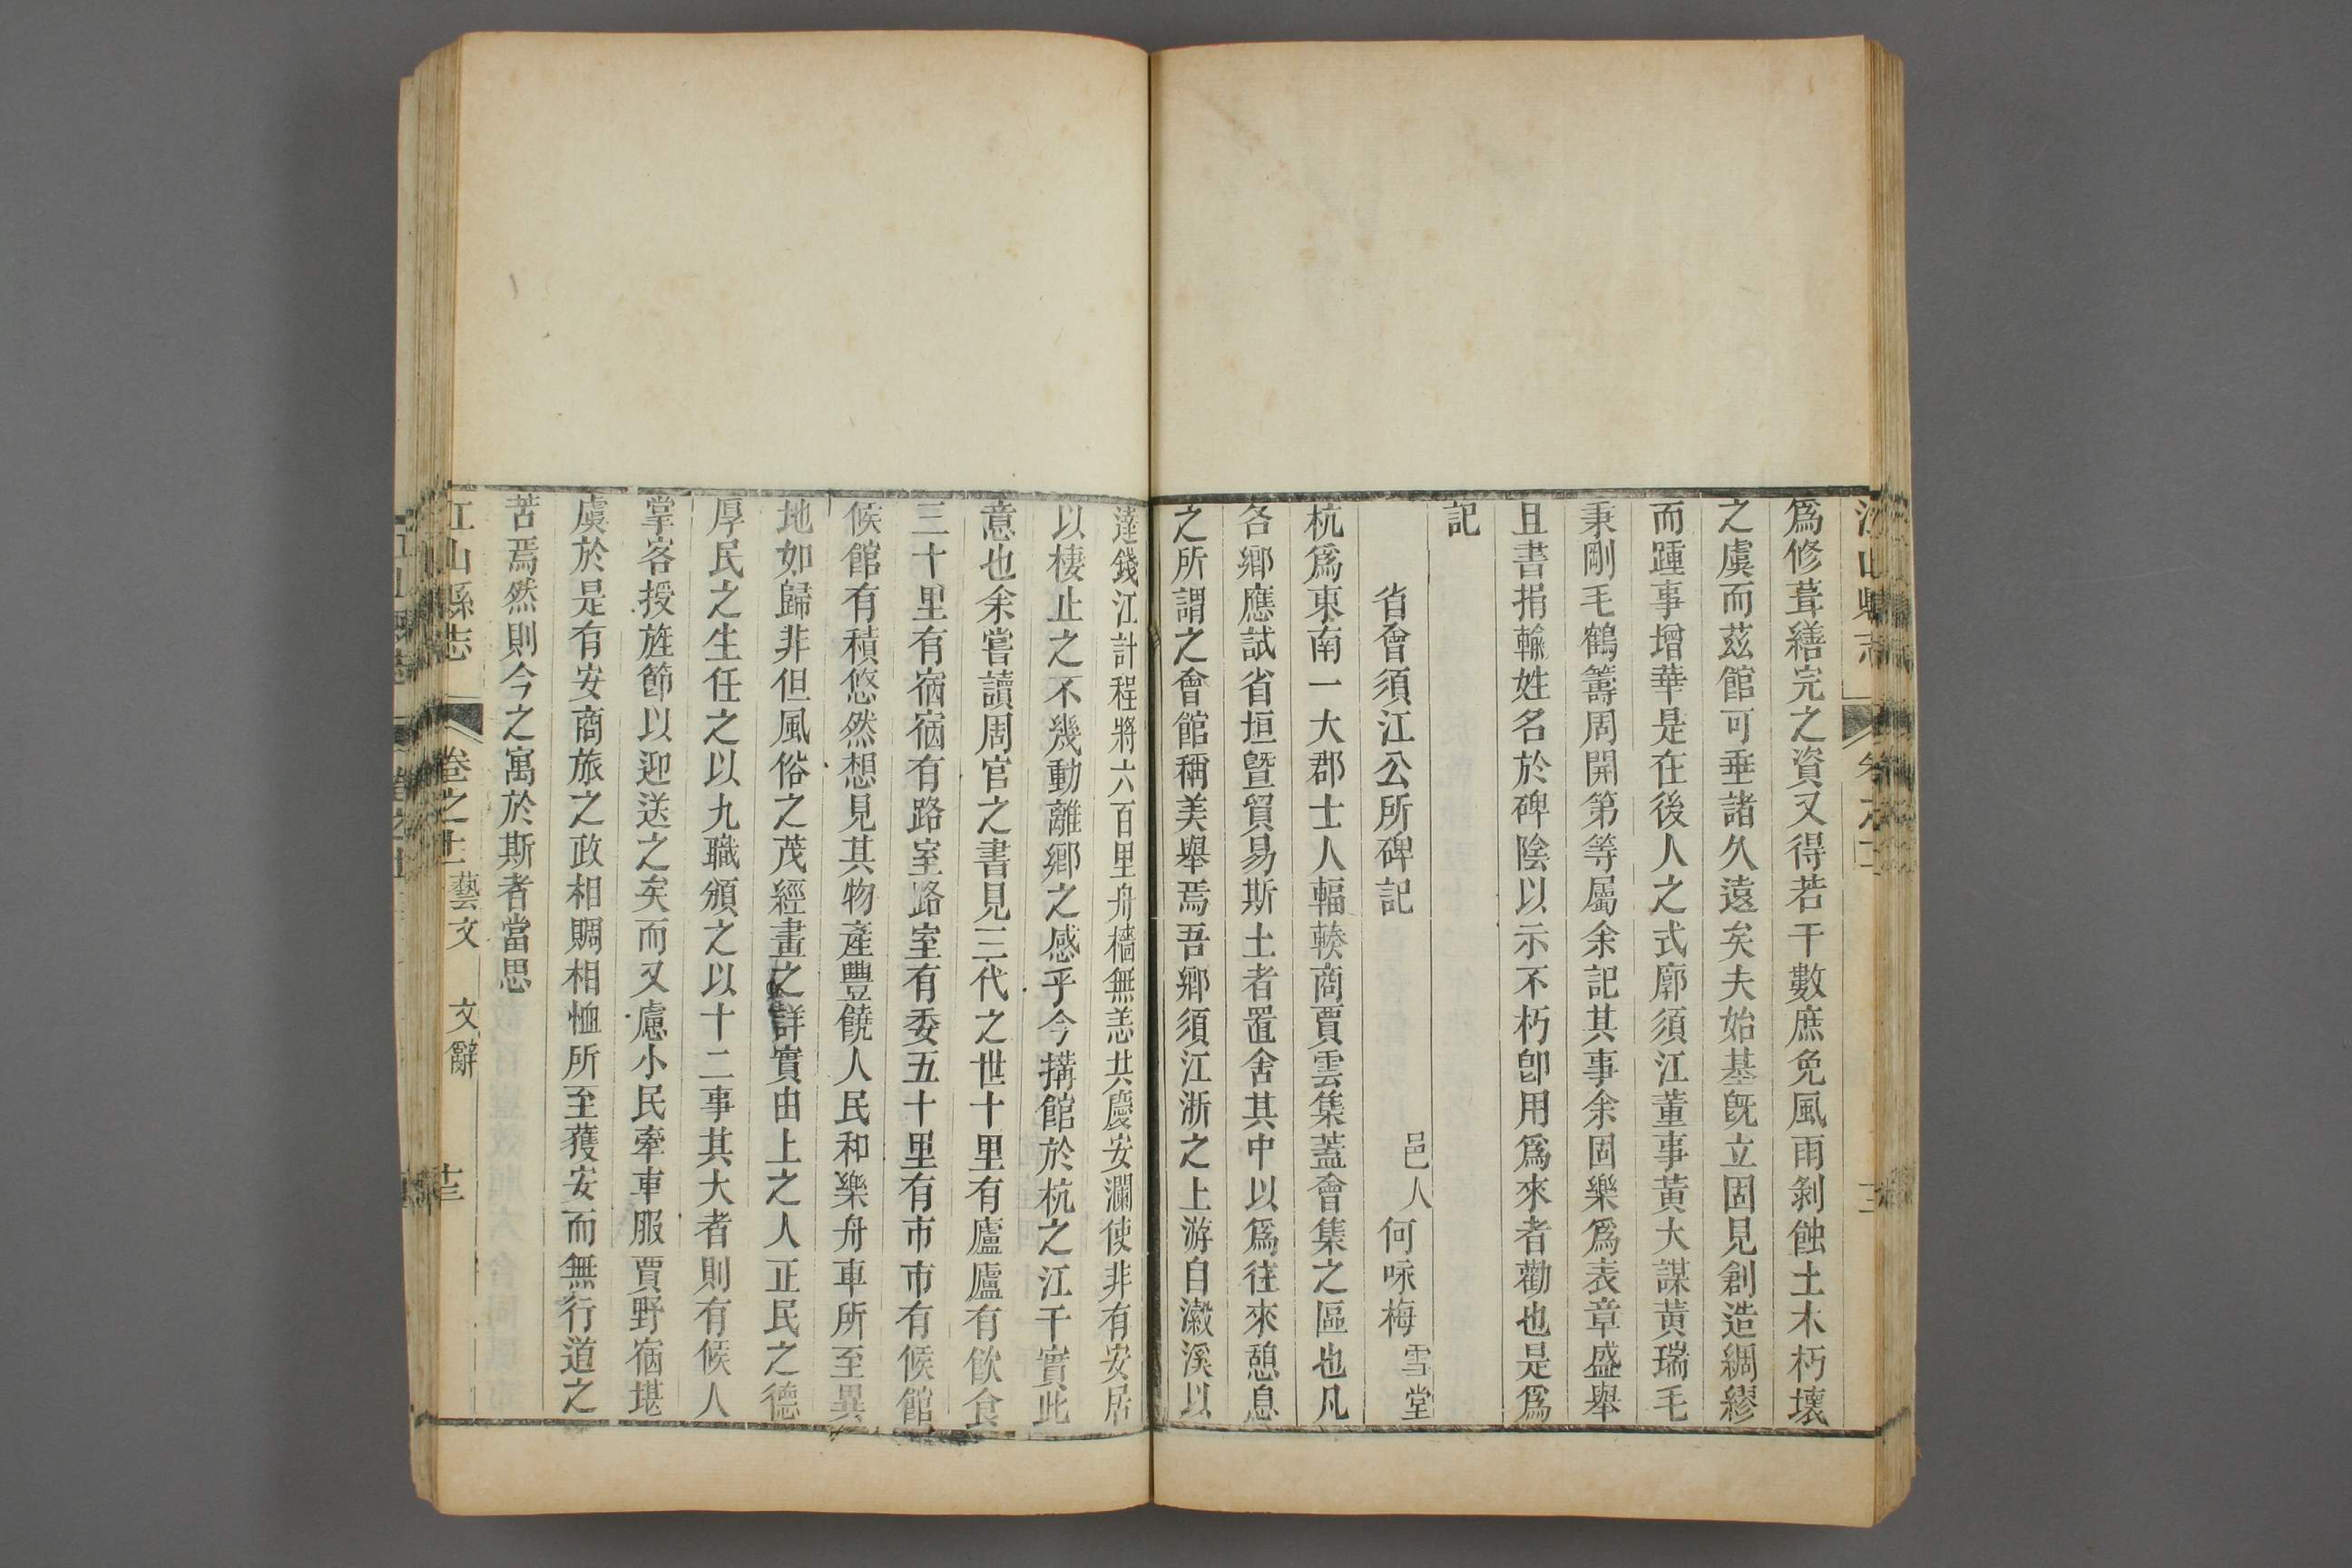 爲修葺繕完之資又得若干數庶免風雨剝蝕土木朽壞
之虞而茲館可垂諸久遠矣夫始基旣立固見創造綢繆
而踵事增華是在後人之式廓須江董事黃大謀黃瑞毛
秉剛毛鶴籌周開第等屬余記其事余固樂爲表章盛舉
且書捐輸姓名於碑陰以示不朽卽用爲來者勸也是爲
記
省會須江公所碑記
邑人何咏梅雪堂
杭爲東南一大郡士人輻輳商賈雲集蓋會集之區也凡
各鄉應試省垣曁貿易斯土者置舍其中以爲往來憩息
之所謂之會館稱美舉焉吾鄉須江浙之上游自瀫溪以
達錢江計程將六百里舟檣無恙共慶安瀾使非有安居
以棲止之不幾動離鄉之感乎今搆館於杭之江干實此
意也余嘗讀周官之書見三代之世十里有廬廬有飮食
三十里有宿宿有路室路室有委五十里有市市有候館
候館有積悠然想見其物產豐饒人民和樂舟車所至異
地如歸非但風俗之茂經畫之詳實由上之人正民之德
厚民之生任之以九職頒之以十二事其大者則有候人
掌客授旌節以迎送之矣而又慮小民牽車服賈野宿堪
虞於是有安商旅之政相賙相恤所至獲安而無行道之
苦焉然則今之寓於斯者當思
江山縣志 卷之十一 藝文 文辭 十三